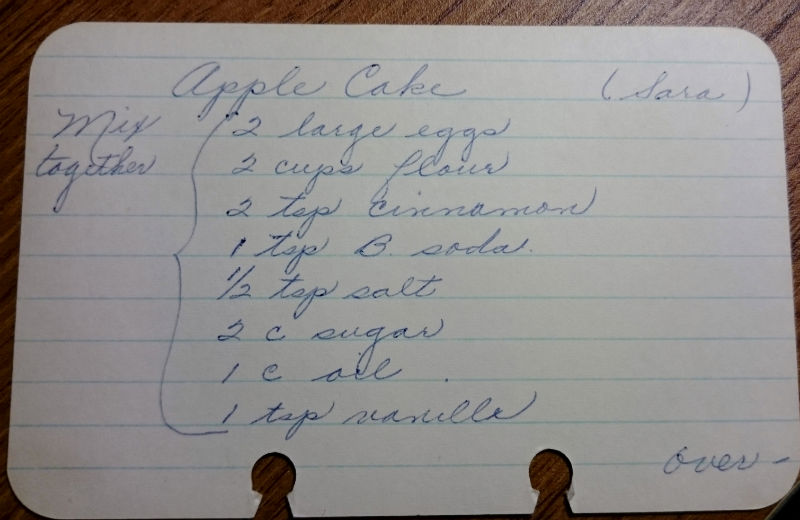 Apple Cake (Sara)
Mix together
2 large eggs
2 cups flour
2 tsp cinnamon
1 tsp B. soda.
1/2 tsp salt
2 c sugar
1 c oil
1 tsp vanilla
over-